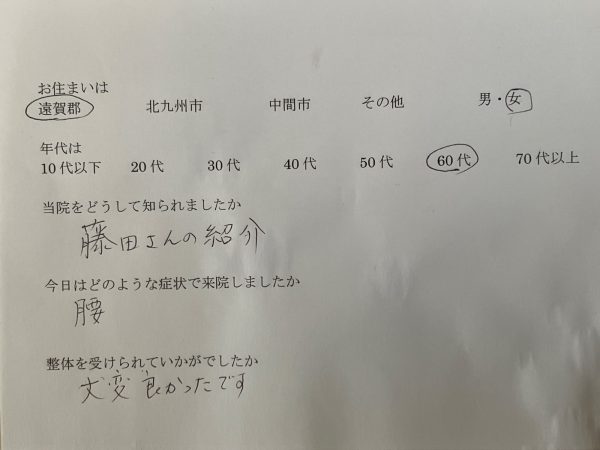 お住まいは
遠賀郡 北九州市 中間市 その他 男・女
年代は
10代以下 20代 30代 40代 50代 60代 70代以上
当院をどうして知られましたか
藤田さんの紹介
今日はどのような症状で来院しましたか
腰
整体を受けられていかがでしたか
大変良かったです